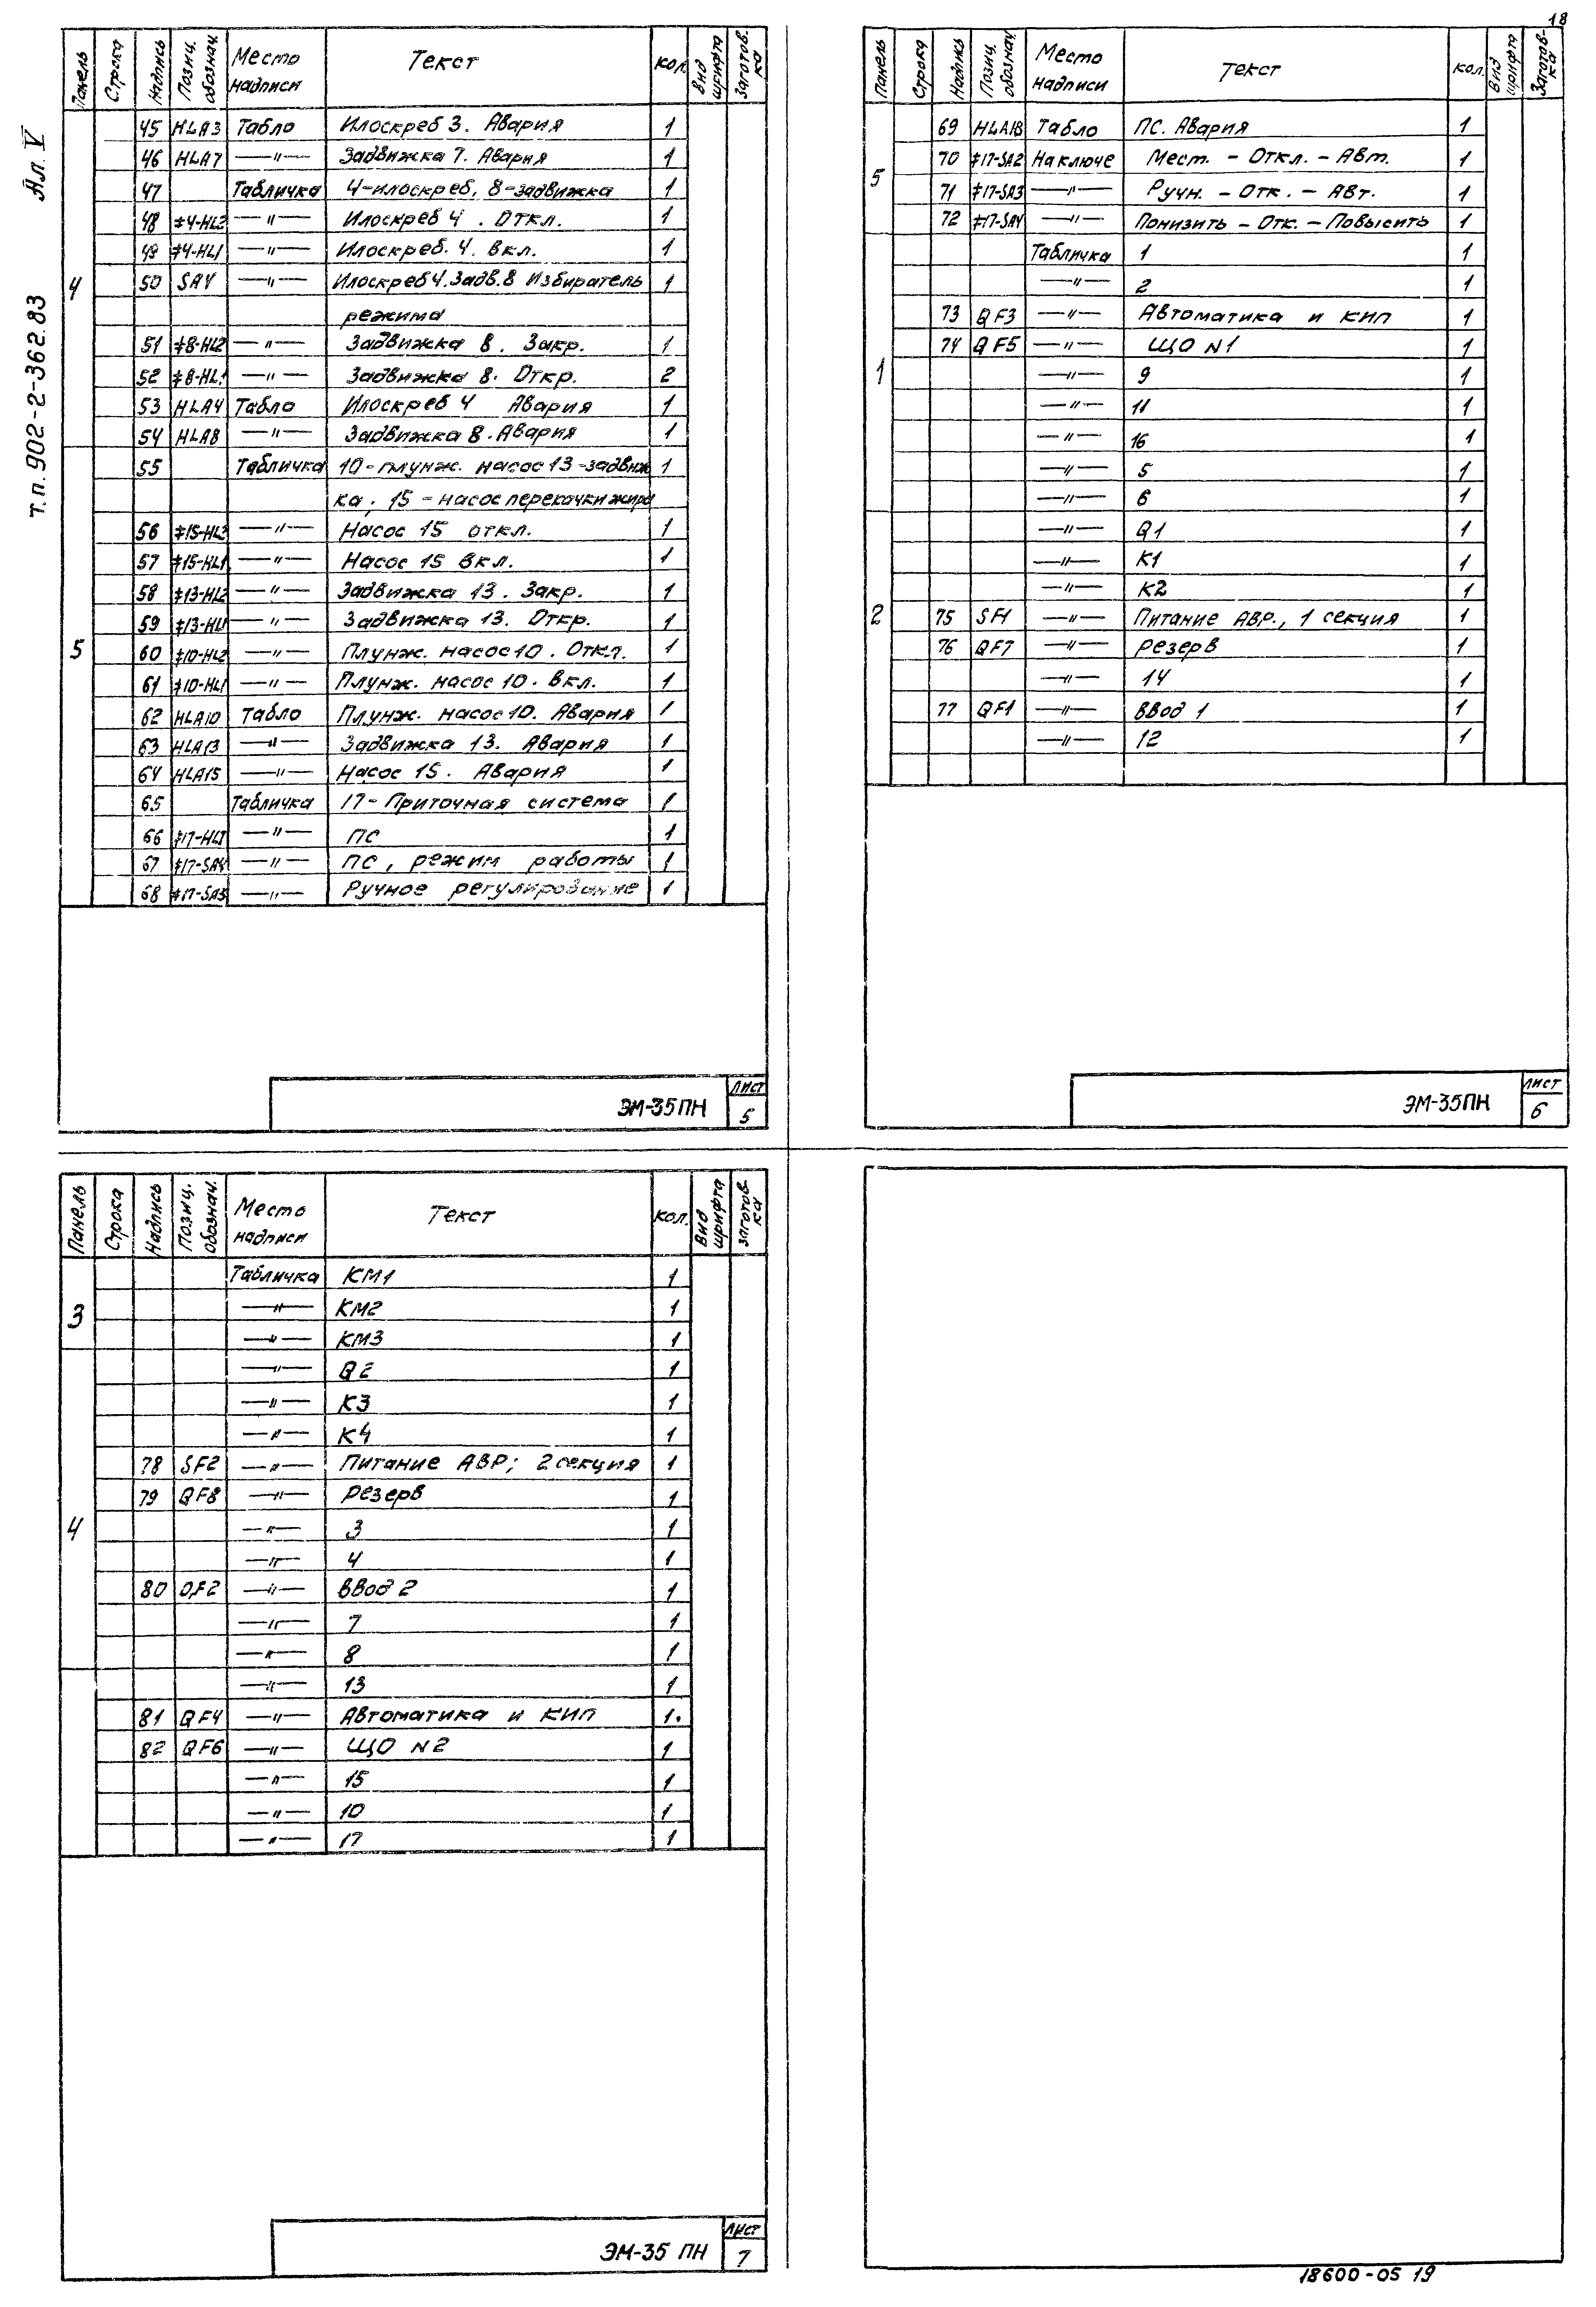 18
т.п. 902-2-362.83 Ал. V
Панель Строка Надпись Позиц. обознач. Место надписи Текст кол. Вид шрифта Заготов. ка
4
45 HLA3 Табло Илоскреб 3. Авария 1
46 HLA7 —"— Задвижка 7. Авария 1
47 Табличка 4-илоскреб, 8-задвижка 1
48 ‡4-HL2 —"— Илоскреб 4. Откл. 1
49 ‡4-HL1 —"— Илоскреб. 4. вкл. 1
50 SA4 —"— Илоскреб 4. Задв. 8 Избиратель 1
режима
51 ‡8-HL2 —"— Задвижка 8. Закр. 1
52 ‡8-HL1 —"— Задвижка 8. Откр. 2
53 HLA4 Табло Илоскреб 4 Авария 1
54 HLA8 —"— Задвижка 8. Авария 1
5
55 Табличка 10-плунж. насос 13-задвиж 1
ка; 15-насос перекачки жира
56 ‡15-HL2 —"— Насос 15 откл. 1
57 ‡15-HL1 —"— Насос 15 вкл. 1
58 ‡13-HL2 —"— Задвижка 13. Закр. 1
59 ‡13-HL1 —"— Задвижка 13. Откр. 1
60 ‡10-HL2 —"— Плунж. насос 10. Откл. 1
61 ‡10-HL1 —"— Плунж. насос 10. вкл. 1
62 HLA10 Табло Плунж. насос 10. Авария 1
63 HLA13 —"— Задвижка 13. Авария 1
64 HLA15 —"— Насос 15. Авария 1
65 Табличка 17-Приточная система 1
66 ‡17-HL1 —"— ПС 1
67 ‡17-SA4 —"— ПС, режим работы 1
68 ‡17-SA3 —"— Ручное регулирование 1
ЭМ-35ПН лист 5
Панель Строка Надпись Позиц. обознач. Место надписи Текст кол. Вид шрифта Заготов-ка
5
69 HLA18 Табло ПС. Авария 1
70 ‡17-SA2 На ключе Мест. - Откл. - Авт. 1
71 ‡17-SA3 —"— Ручн. - Отк. - Авт. 1
72 ‡17-SA4 —"— Понизить - Отк. - Повысить 1
1
Табличка 1 1
—"— 2 1
73 QF3 —"— Автоматика и КИП 1
74 QF5 —"— ЩО N1 1
—"— 9 1
—"— 11 1
—"— 16 1
—"— 5 1
—"— 6 1
2
—"— Q1 1
—"— К1 1
—"— К2 1
75 SF1 —"— Питание АВР., 1 секция 1
76 QF7 —"— резерв 1
—"— 14 1
77 QF1 —"— ввод 1 1
—"— 12 1
ЭМ-35ПН лист 6
Панель Строка Надпись Позиц. обознач. Место надписи Текст кол. Вид шрифта заготов-ка
3
Табличка КМ1 1
—"— КМ2 1
—"— КМ3 1
4
—"— Q2 1
—"— К3 1
—"— К4 1
78 SF2 —"— Питание АВР; 2 секция 1
79 QF8 —"— резерв 1
—"— 3 1
—"— 4 1
80 QF2 —"— ввод 2 1
—"— 7 1
—"— 8 1
—"— 13 1
81 QF4 —"— Автоматика и КИП 1.
82 QF6 —"— ЩО N2 1
—"— 15 1
—"— 10 1
—"— 17 1
ЭМ-35 ПН лист 7
18600-05 19